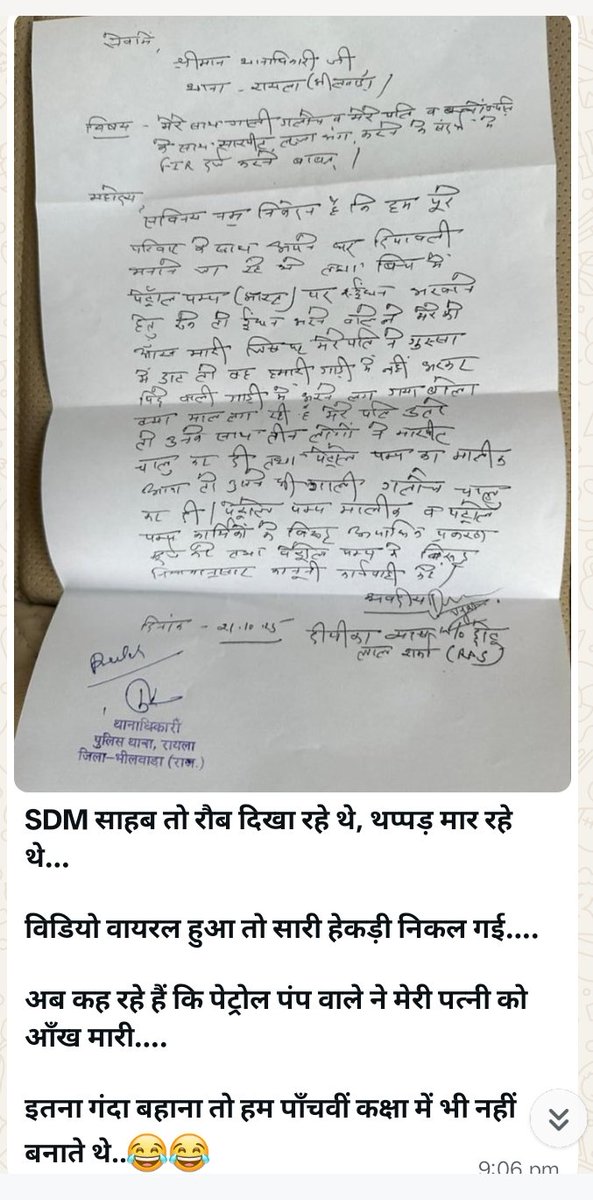 सेवामें,
श्रीमान थानाधिकारी जी
थाना - रायला (भीलवाड़ा)
विषय - मेरे साथ गाली गलोच व मेरे पति व
के साथ मारपीट, लज्जा भंग करने के संदर्भ में
FIR दर्ज करने बाबत् /
महोदय,
सविनय नम्र निवेदन है कि हम पूरे
परिवार के साथ अपने घर दिपावली
मनाने जा रहे थे तथा बिच में
पेट्रोल पम्प पर ईंधन भरवाने
हेतु रुके तो ईंधन भरने वाले ने मेरे को
आँख मारी जिस पर मेरे पति ने गुस्सा
में डाट तो वह हमारी गाड़ी में नहीं भरकर
पिछे वाली गाड़ी में भरने लग गया बोला
क्या माल लग रही है मेरे पति उतरे
तो उनके साथ तीन लोगों ने मारपीट
चालु कर दी तथा पेट्रोल पम्प का मालीक
आया तो उसने भी गाली गलोच चालु
कर दी / पेट्रोल पम्प मालीक व पेट्रोल
पम्प कार्मिकों के विरूद्ध आपराधिक प्रकरण
दर्ज करे तथा पेट्रोल पम्प के विरूद्ध
नियमानुसार कानूनी कार्यवाही करे /
भवदीया
दिनांक - 21.10.25
दीपिका व्यास W/o छोटू
लाल शर्मा (RAS)
थानाधिकारी
पुलिस थाना, रायला
जिला-भीलवाडा (राज.)
SDM साहब तो रौब दिखा रहे थे, थप्पड़ मार रहे
थे...
विडियो वायरल हुआ तो सारी हेकड़ी निकल गई....
अब कह रहे हैं कि पेट्रोल पंप वाले ने मेरी पत्नी को
आँख मारी....
इतना गंदा बहाना तो हम पाँचवीं कक्षा में भी नहीं
बनाते थे..😂😂
9:06 pm